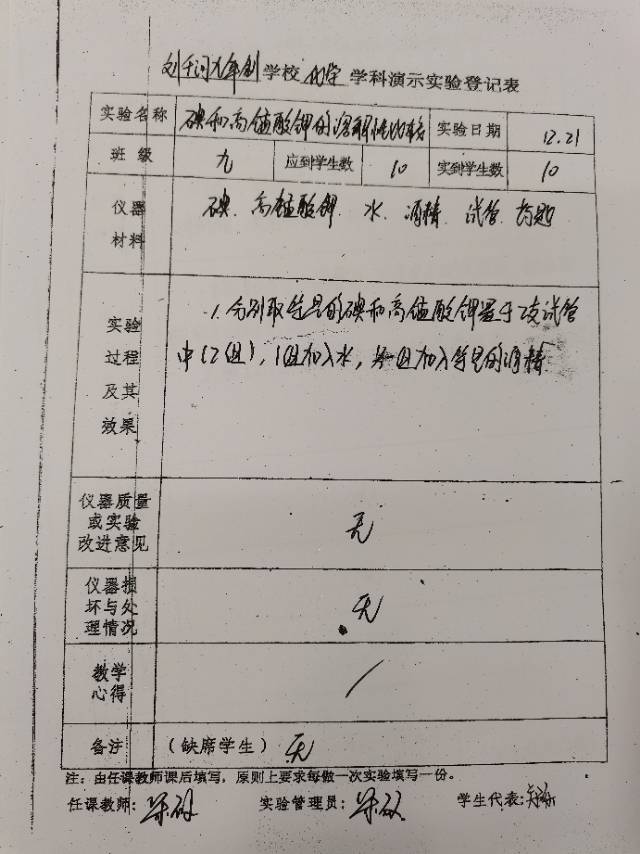 九年制学校 化学 学科演示实验登记表
实验名称 碘和高锰酸钾的溶解性比较 实验日期 12.21
班 级 九 应到学生数 10 实到学生数 10
仪器 碘、高锰酸钾、水、酒精、试管、药匙
材料
实验 1.分别取等量的碘和高锰酸钾置于2支试管
过程 中(2组),1组加入水,另一组加入等量的酒精
及其
效果
仪器质量
或实验 无
改进意见
仪器损
坏与处 无
理情况
教学 /
心得
备注 (缺席学生) 无
注:由任课教师课后填写,原则上要求每做一次实验填写一份。
任课教师: 实验管理员: 学生代表: